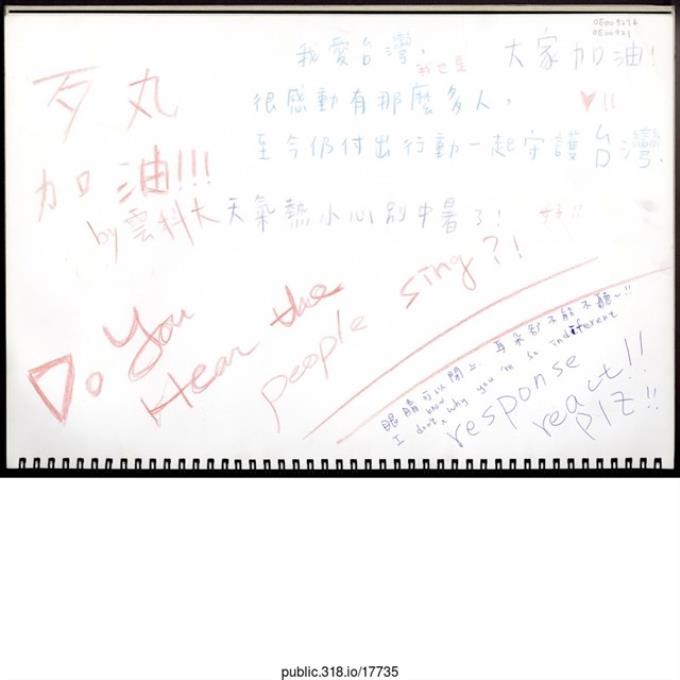 0E009276
0E00921
我愛台灣,
我也是
大家加油!
很感動有那麼多人,
♥!!
至今仍付出行動一起守護台灣.
歹丸
加油!!!
by 雲科大
天氣熱小心別中暑了!
Do You
Hear the
people sing?!
眼睛可以閉上 耳朵卻不能不聽~!!
I don't know why you're so indifferent
response
react!!
plz!!
public.318.io/17735